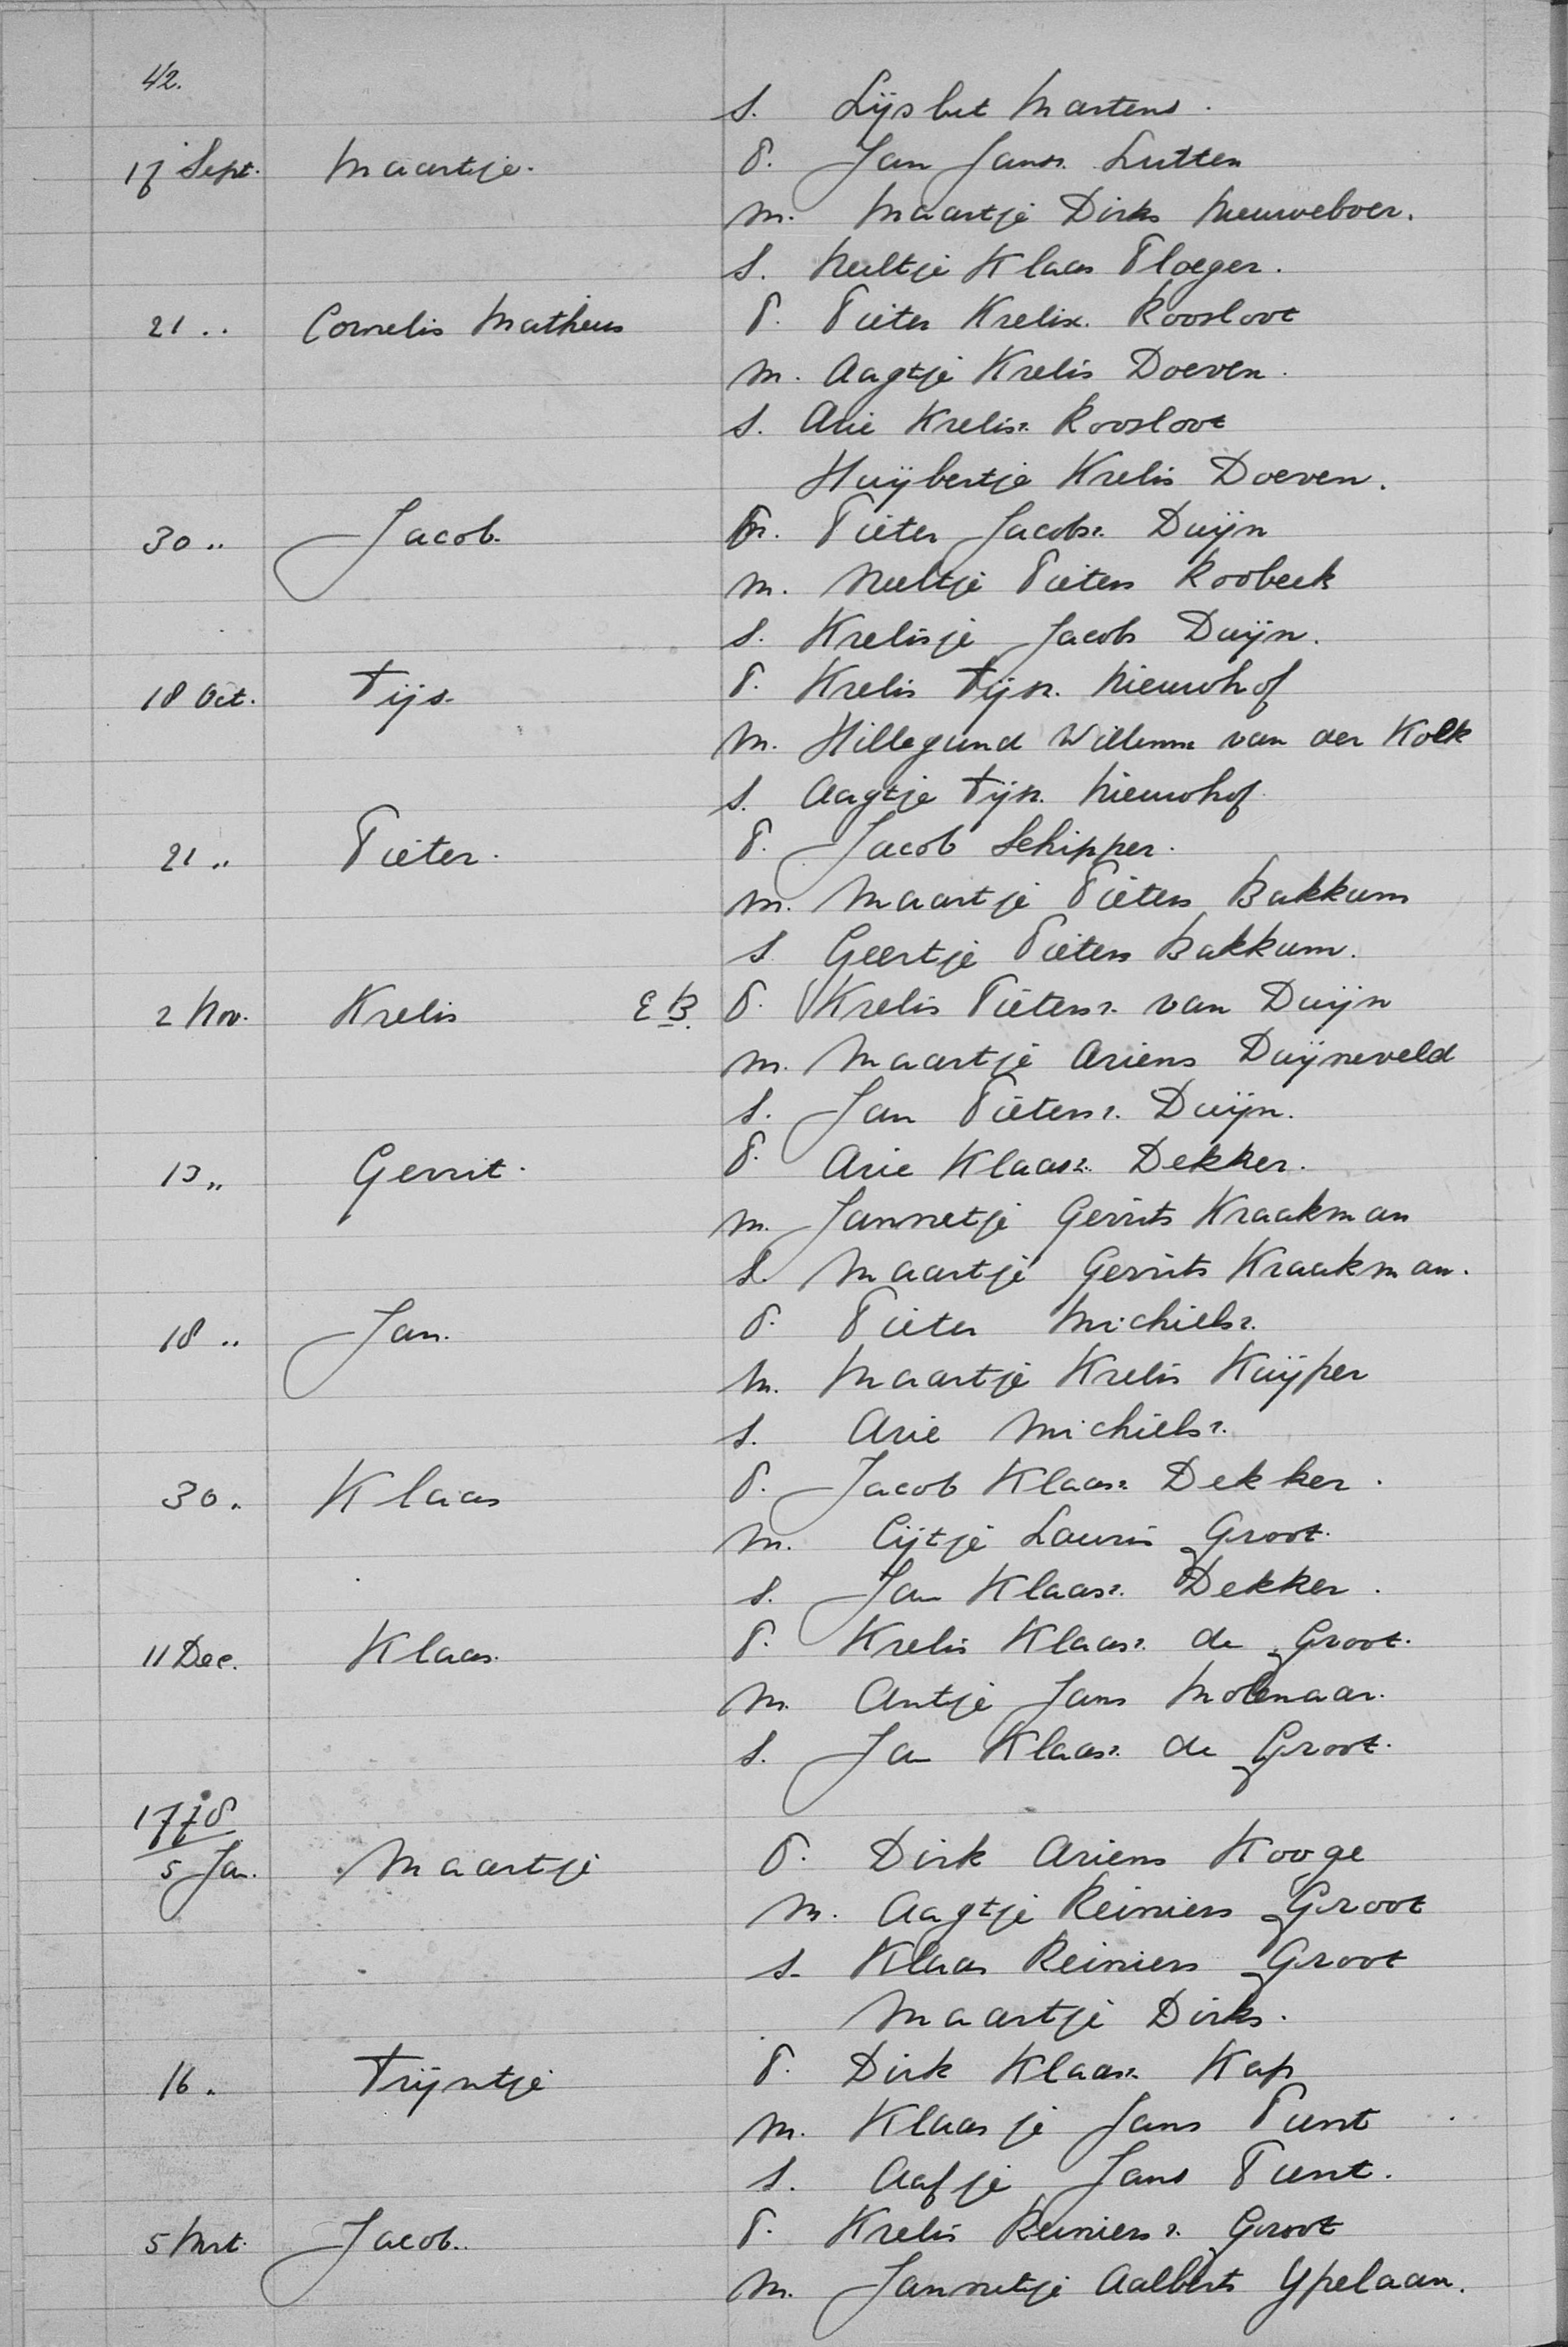 42.
S. Lijsbet Martens.
17 Sept. Maartje. P. Jan Jansz. Lutten
M. Maartje Dirks Nieuweboer.
S. Neeltje Klaas Ploeger.
21 .. Cornelis Matheus P. Pieter Krelisz. Roosloot
M. Aagtje Krelis Doeven.
S. Arie Krelisz. Roosloot
Huijbertje Krelis Doeven.
30 .. Jacob. P. Pieter Jacobsz. Duijn
M. Neeltje Pieters Roobeek
S. Krelisje Jacobs Duijn.
18 Oct. Tijs. P. Krelis Tijsz. Nieuwhof
M. Hillegund Willems van der Kolk
S. Aagtje Tijsz. Nieuwhof.
21 .. Pieter. P. Jacob Schipper.
M. Maartje Pieters Bakkum
S. Geertje Pieters Bakkum.
2 Nov. Krelis E B. P. Krelis Pietersz. van Duijn
M. Maartje Ariens Duijneveld
S. Jan Pietersz. Duijn.
13 .. Gerrit. P. Arie Klaasz. Dekker.
M. Jannetje Gerrits Kraakman
S. Maartje Gerrits Kraakman.
18 .. Jan. P. Pieter Michielsz.
M. Maartje Krelis Kuijper
S. Arie Michielsz.
30 .. Klaas P. Jacob Klaasz Dekker.
M. Cijtje Louris Groot.
S. Jan Klaasz. Dekker.
11 Dec. Klaas. P. Krelis Klaasz. de Groot.
M. Antje Jans Molenaar.
S. Jan Klaasz. de Groot.
1778
5 Jan. Maartje P. Dirk Ariens Kooge
M. Aagtje Reiniers Groot
S. Klaas Reiniers Groot
Maartje Dirks.
16 .. Trijntje P. Dirk Klaasz. Kap
M. Klaasje Jans Punt
S. Aafje Jans Punt.
5 Mrt. Jacob. P. Krelis Reiniersz. Groot
M. Jannetje Aalberts Ypelaan.